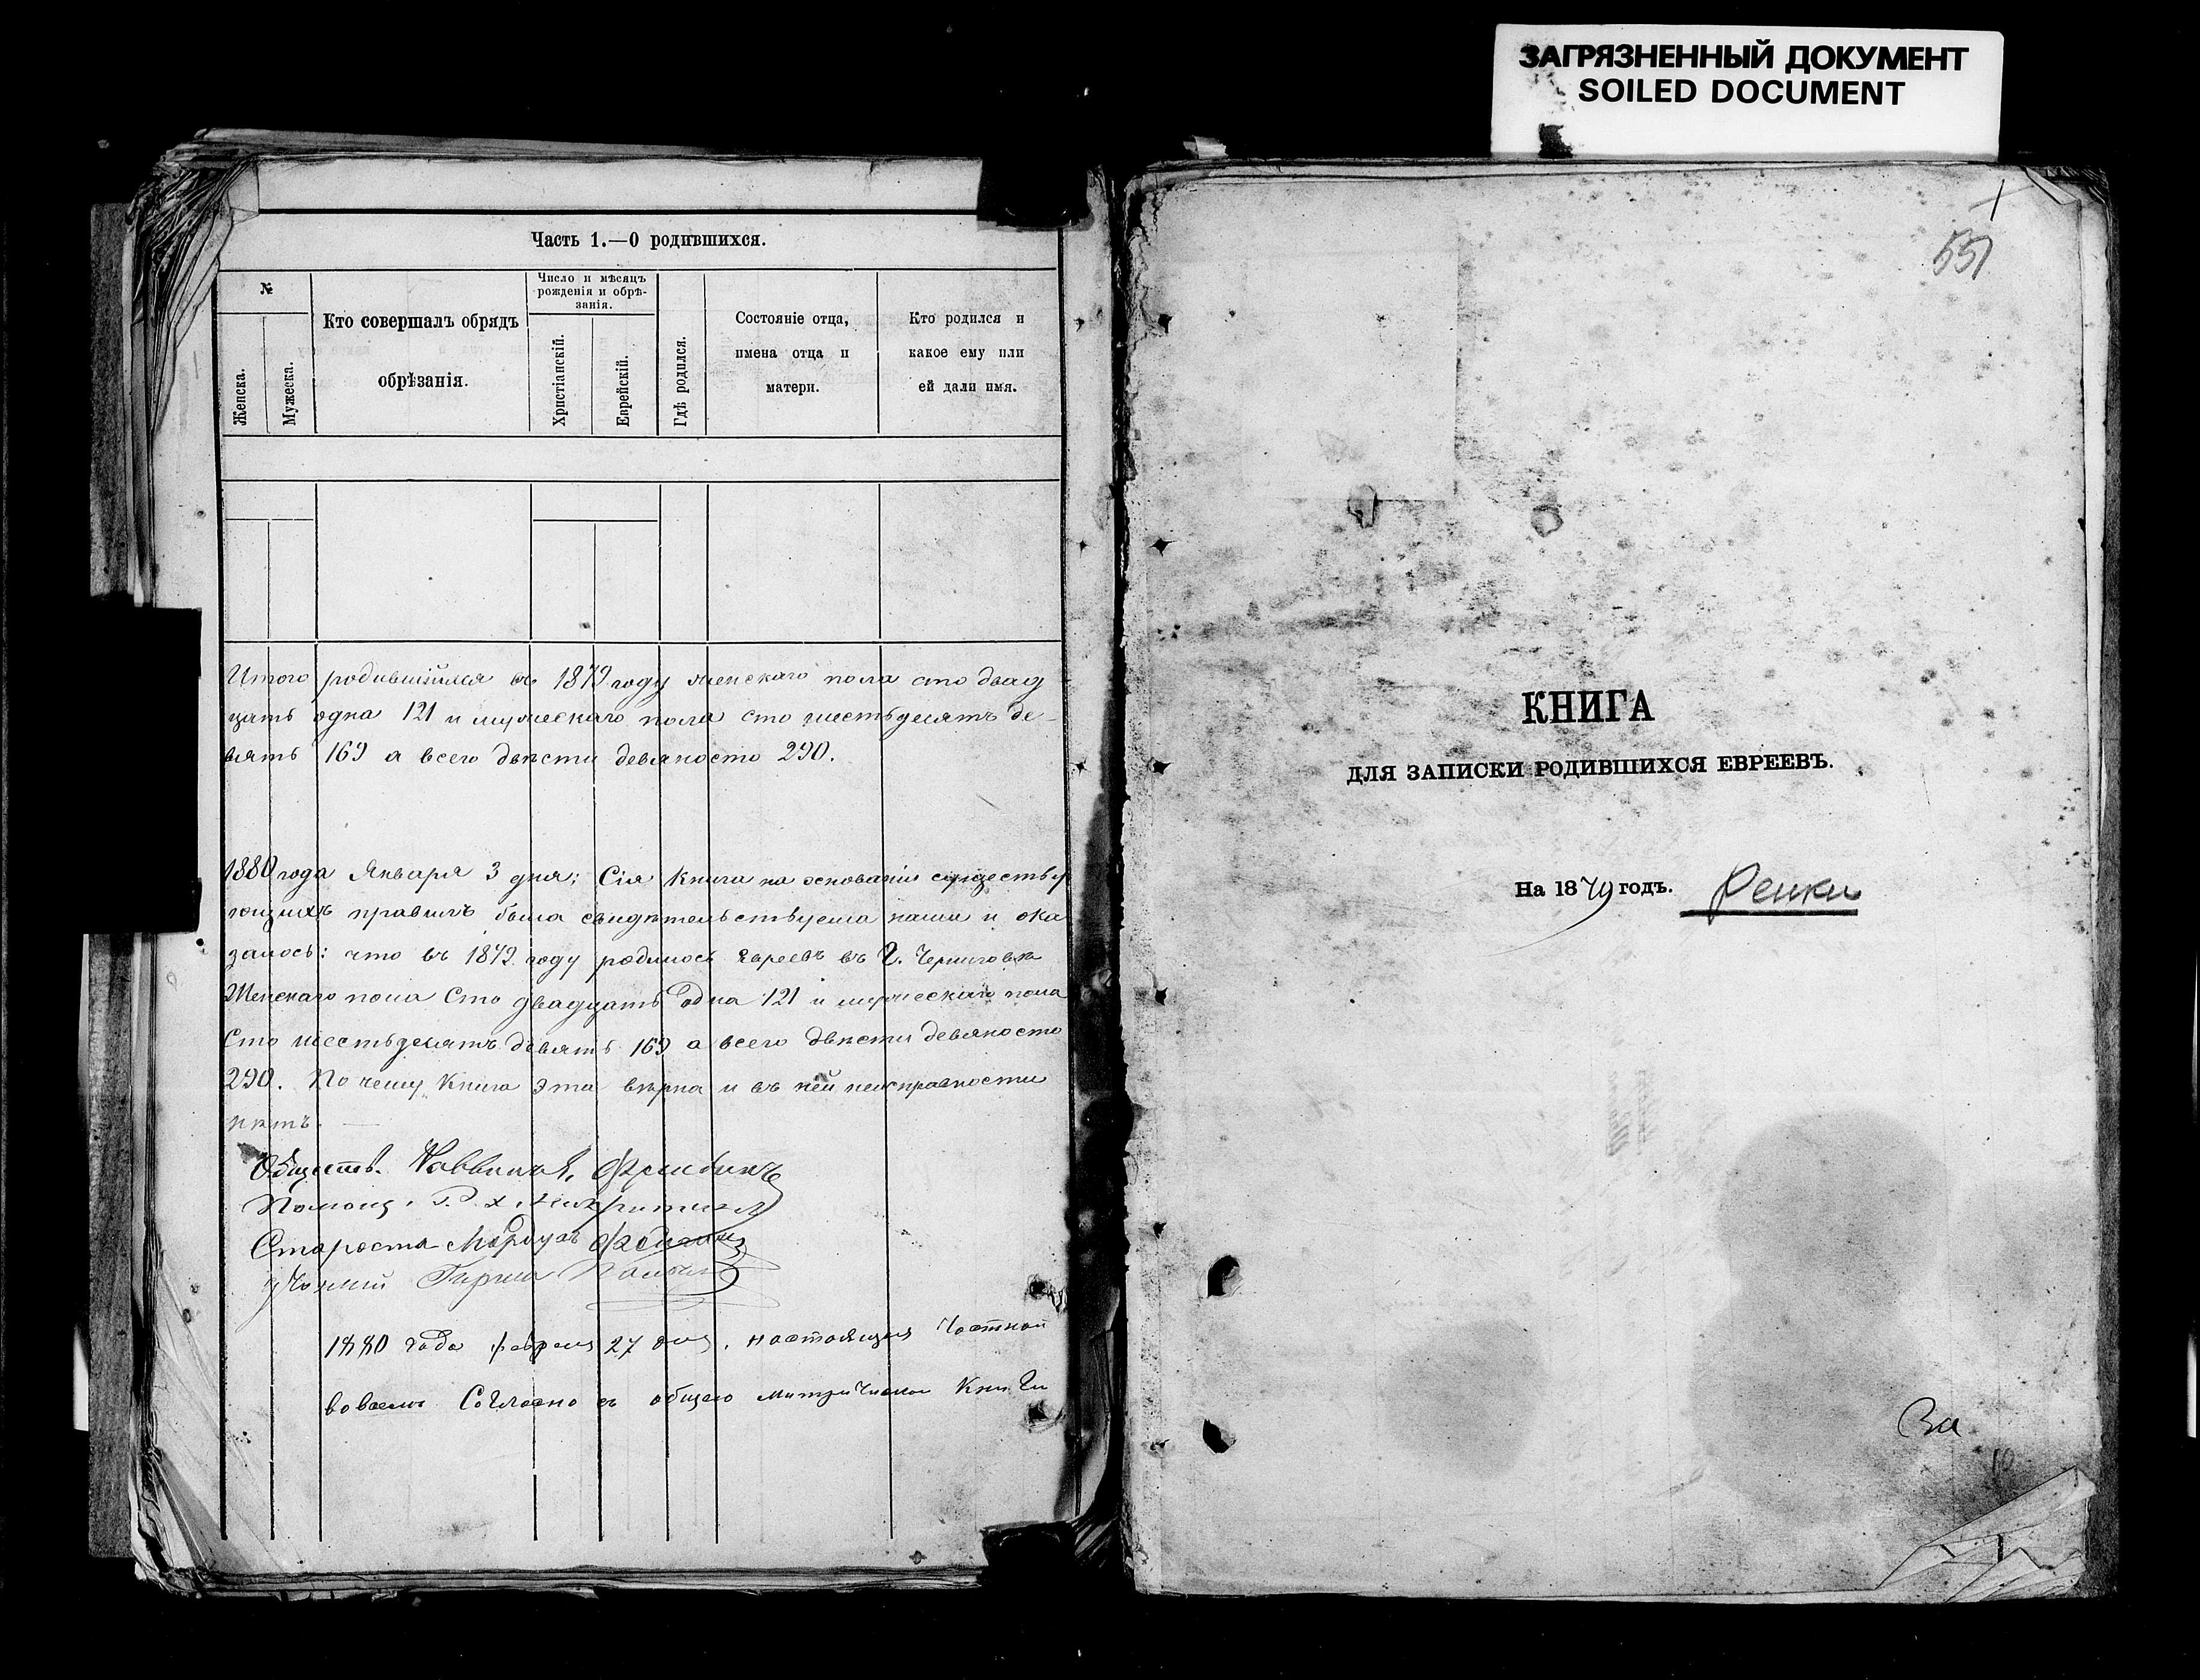 ЗАГРЯЗНЕННЫЙ ДОКУМЕНТ
SOILED DOCUMENT
Часть 1.—О родившихся.
№
Женска.
Мужеска.
Кто совершалъ обрядъ
обрѣзанія.
Число и мѣсяцъ
рожденія и обрѣ-
занія.
Христіанскій.
Еврейскій.
Гдѣ родился.
Состояніе отца,
имена отца и
матери.
Кто родился и
какое ему или
ей дали имя.
Итого родившійся въ 1879 году женскаго пола сто двад
цать одна 121 и мужескаго пола сто шестьдесятъ де-
вять 169 а всего двѣсти девяносто 290.
1880 года Января 3 дня; Сія Книга на основаніи существу
ющихъ правилъ была свидѣтельствуема нами и ока
залось: что въ 1879 году родилось евреевъ въ Г. Черниговѣ
Женскаго пола Сто двадцать одна 121 и мужескаго пола
Сто шестьдесятъ девять 169 а всего двѣсти девяносто
290. По чему Книга эта вѣрна и въ ней неисправности
нѣтъ.
Обществ. Раввинъ
Помощ.
Староста Мордухъ
Ученый Гирша
1880 года февраля 27 дня, настоящая
во всемъ Согласно съ общею Книги
1
551
КНИГА
ДЛЯ ЗАПИСКИ РОДИВШИХСЯ ЕВРЕЕВЪ.
На 1879 годъ. Репки
За